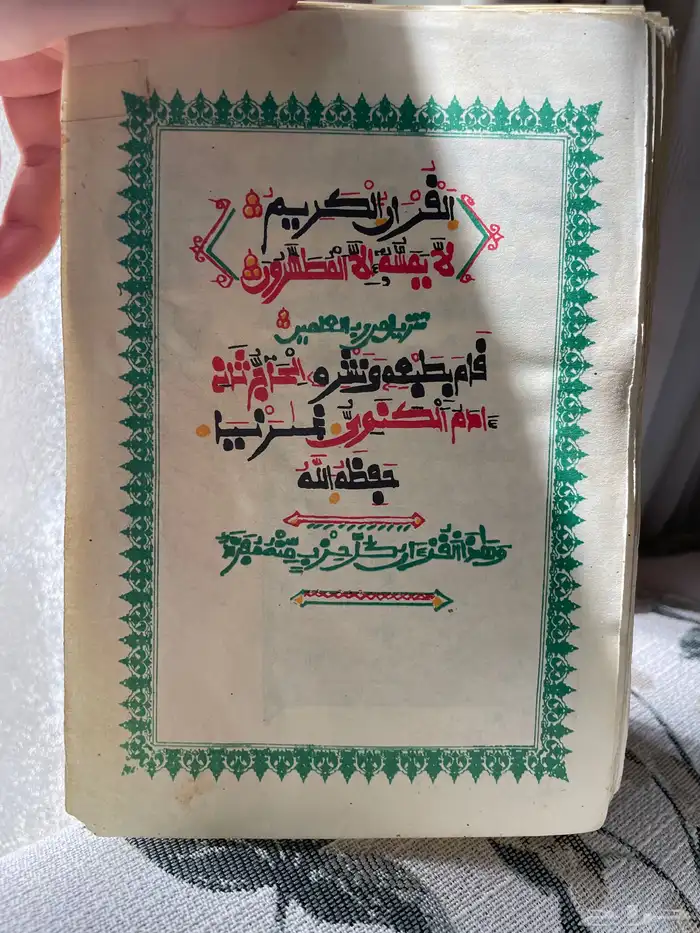 اَلْقُرْءَانُ الْكَرِيم
لَّا يَمَسُّهُ إِلَّا الْمُطَهَّرُونَ
تنزيل من رب العلمين
قَامَ بِطَبْعِهِ وَنَشْرِهِ اِلْحَاجُّ ثَانِ
اَدَمْ اَلْكَنَوِيُّ نَيْجَيْرْيَا
حَفِظَهُ اللَّهُ
وَهَٰذَا الْقُرْءَانُ كُلُّ حِزْبٍ مِنْهُ